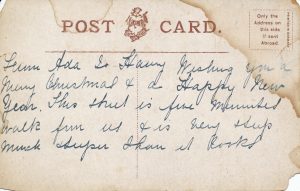 POST CARD.
Only the
Address on
this side
if sent
Abroad.
From Ada to Harry Wishing you a
Merry Christmas & a Happy New
Year. This street is five Minutes
walk from us & is very steep
Much steeper than it looks